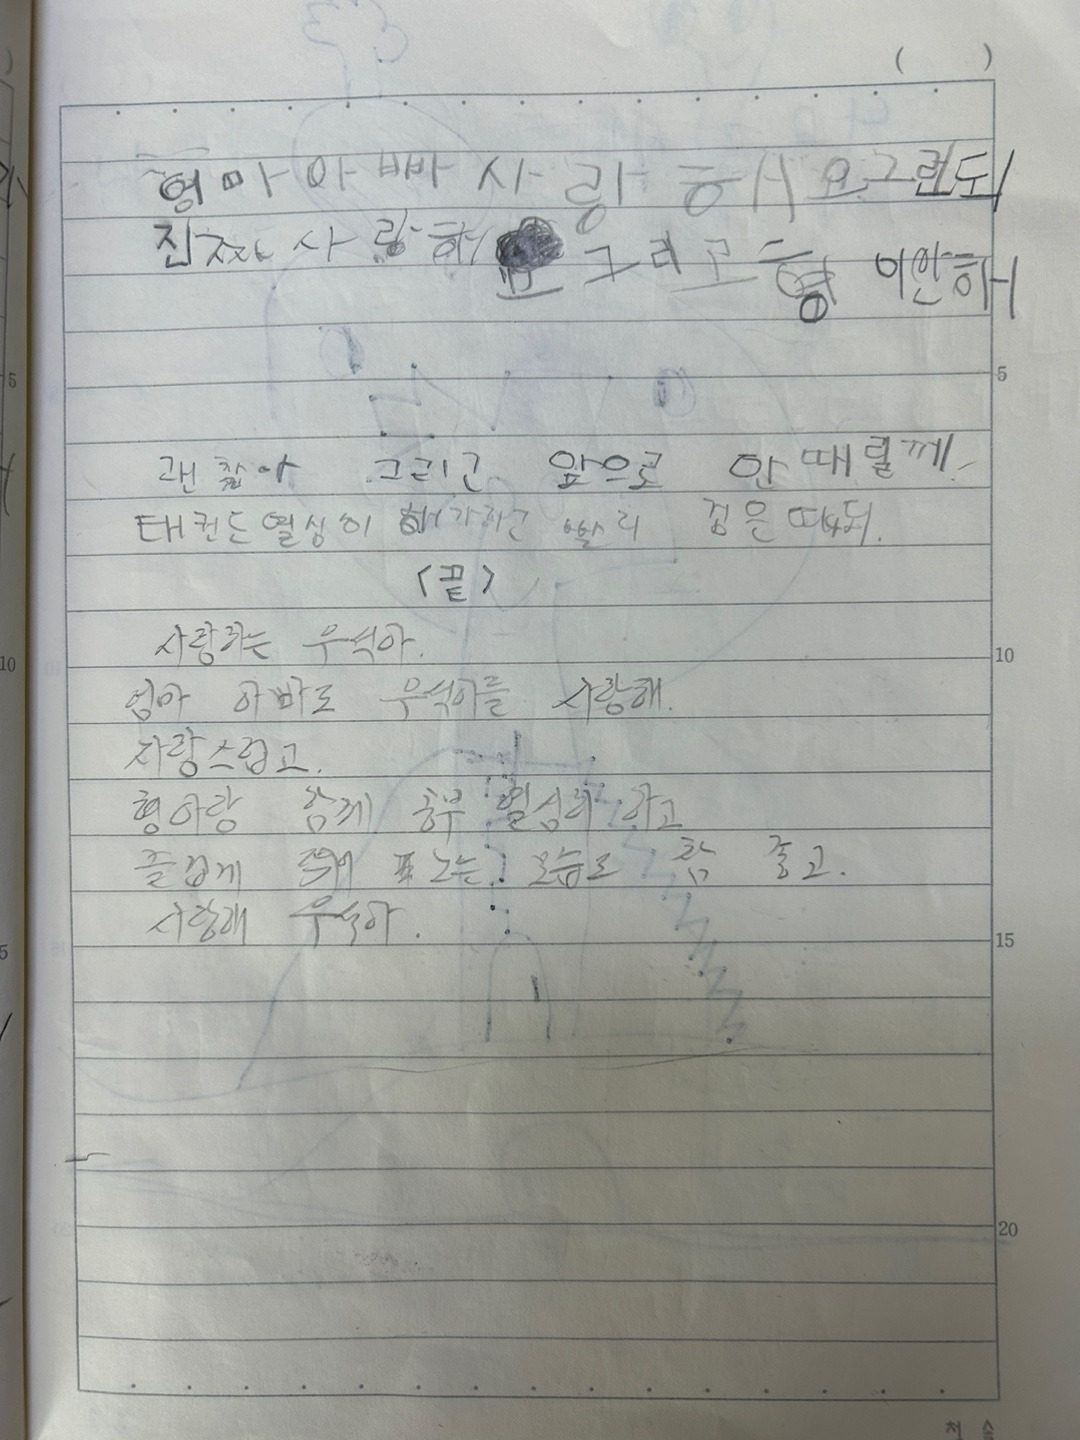 엄마 아빠 사랑해요 그런데
진짜 사랑해요 그리고 형 미안해
5
괜찮아 그리고 앞으로 안 때릴께.
태권도 열심이 해가지고 빨리 검은띠 되.
<끝>
사랑하는 우석아.
10
엄마 아빠도 우석이를 사랑해.
자랑스럽고.
형아랑 함께 공부 열심히 하고
즐겁게 노는 모습도 참 좋고.
사랑해 우석아.
15
20